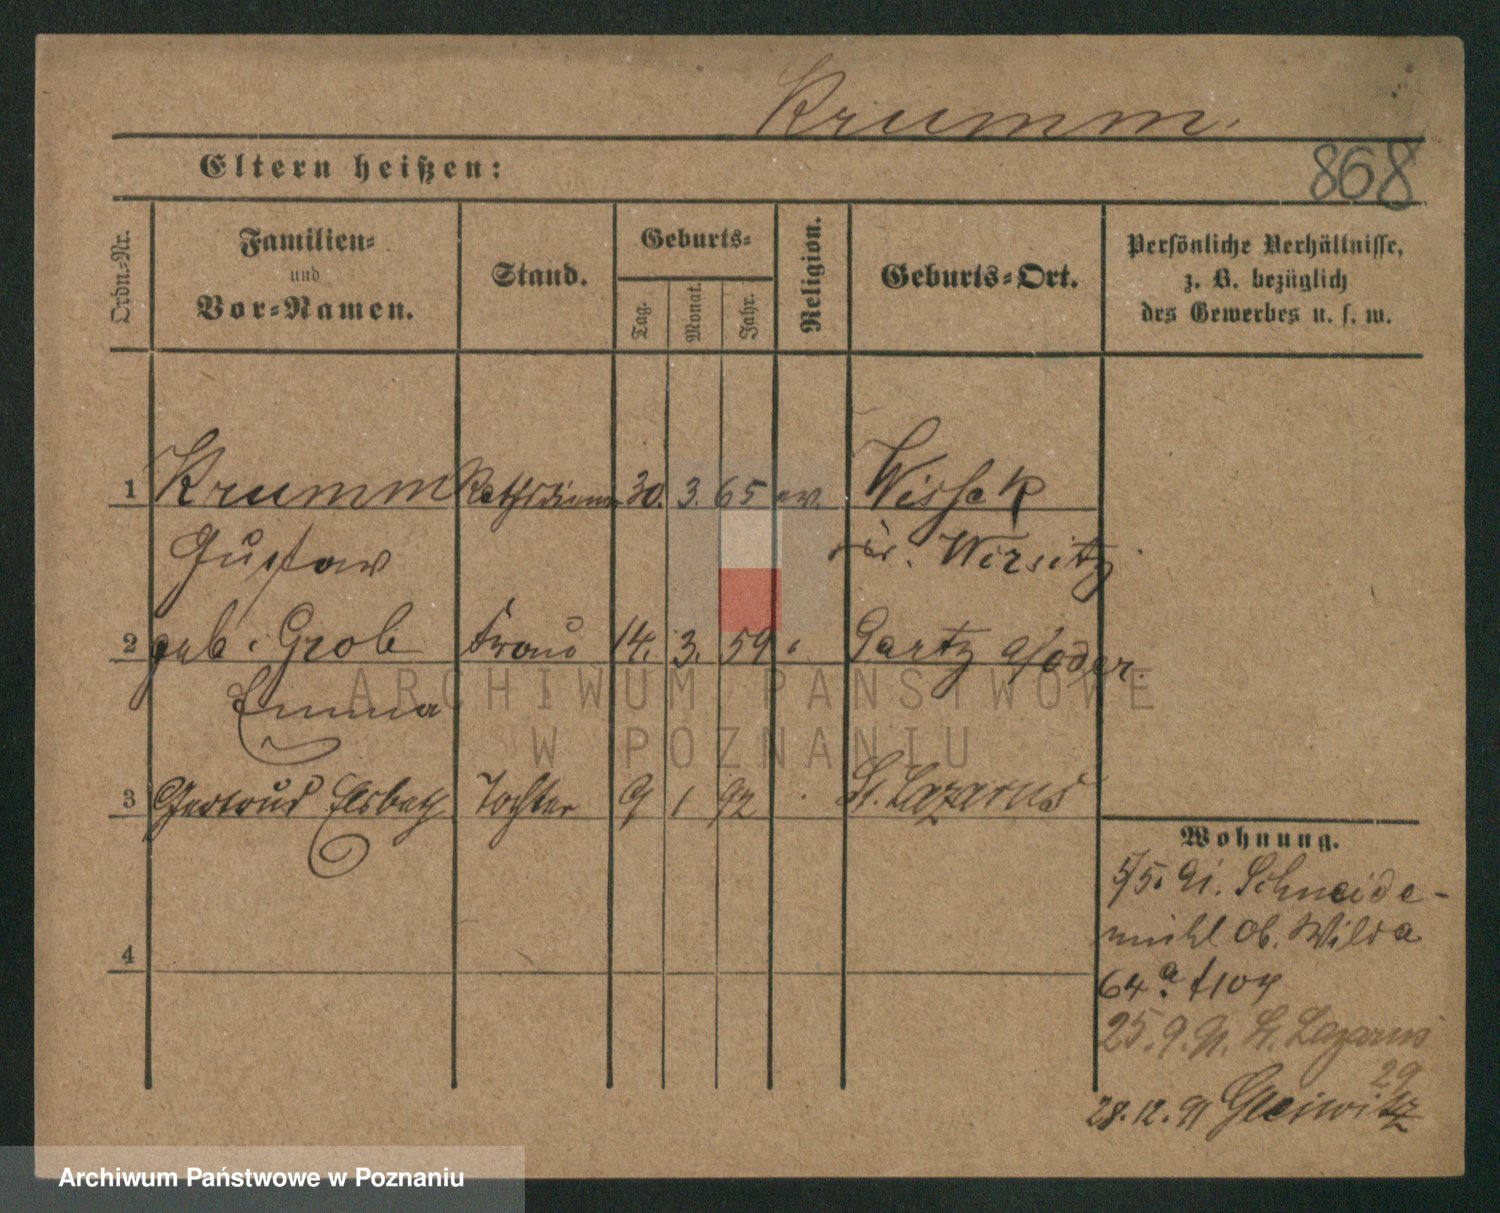 Krumm.
868
Eltern heißen:
Ordn.-Nr.
Familien-
und
Vor-Namen.
Stand.
Geburts-
Tag.
Monat.
Jahr.
Religion.
Geburts-Ort.
Persönliche Verhältnisse,
z. B. bezüglich
des Gewerbes u. s. w.
1 Krumm 30. 3. 65 ev. Wissek
Gustav Wirsitz
2 geb. Grob Frau 14. 3. 59 Gartz a/Oder.
Emma
3 Gertrud Elsbeth Tochter 9 1 92 St. Lazarus
4
Wohnung.
5/5. 91. Schneide-
mühl Ob. Wilda
64a.
25. 9. 91. St. Lazarus
29
28. 12. 91 Gleiwitz
ARCHIWUM PAŃSTWOWE
W POZNANIU
Archiwum Państwowe w Poznaniu